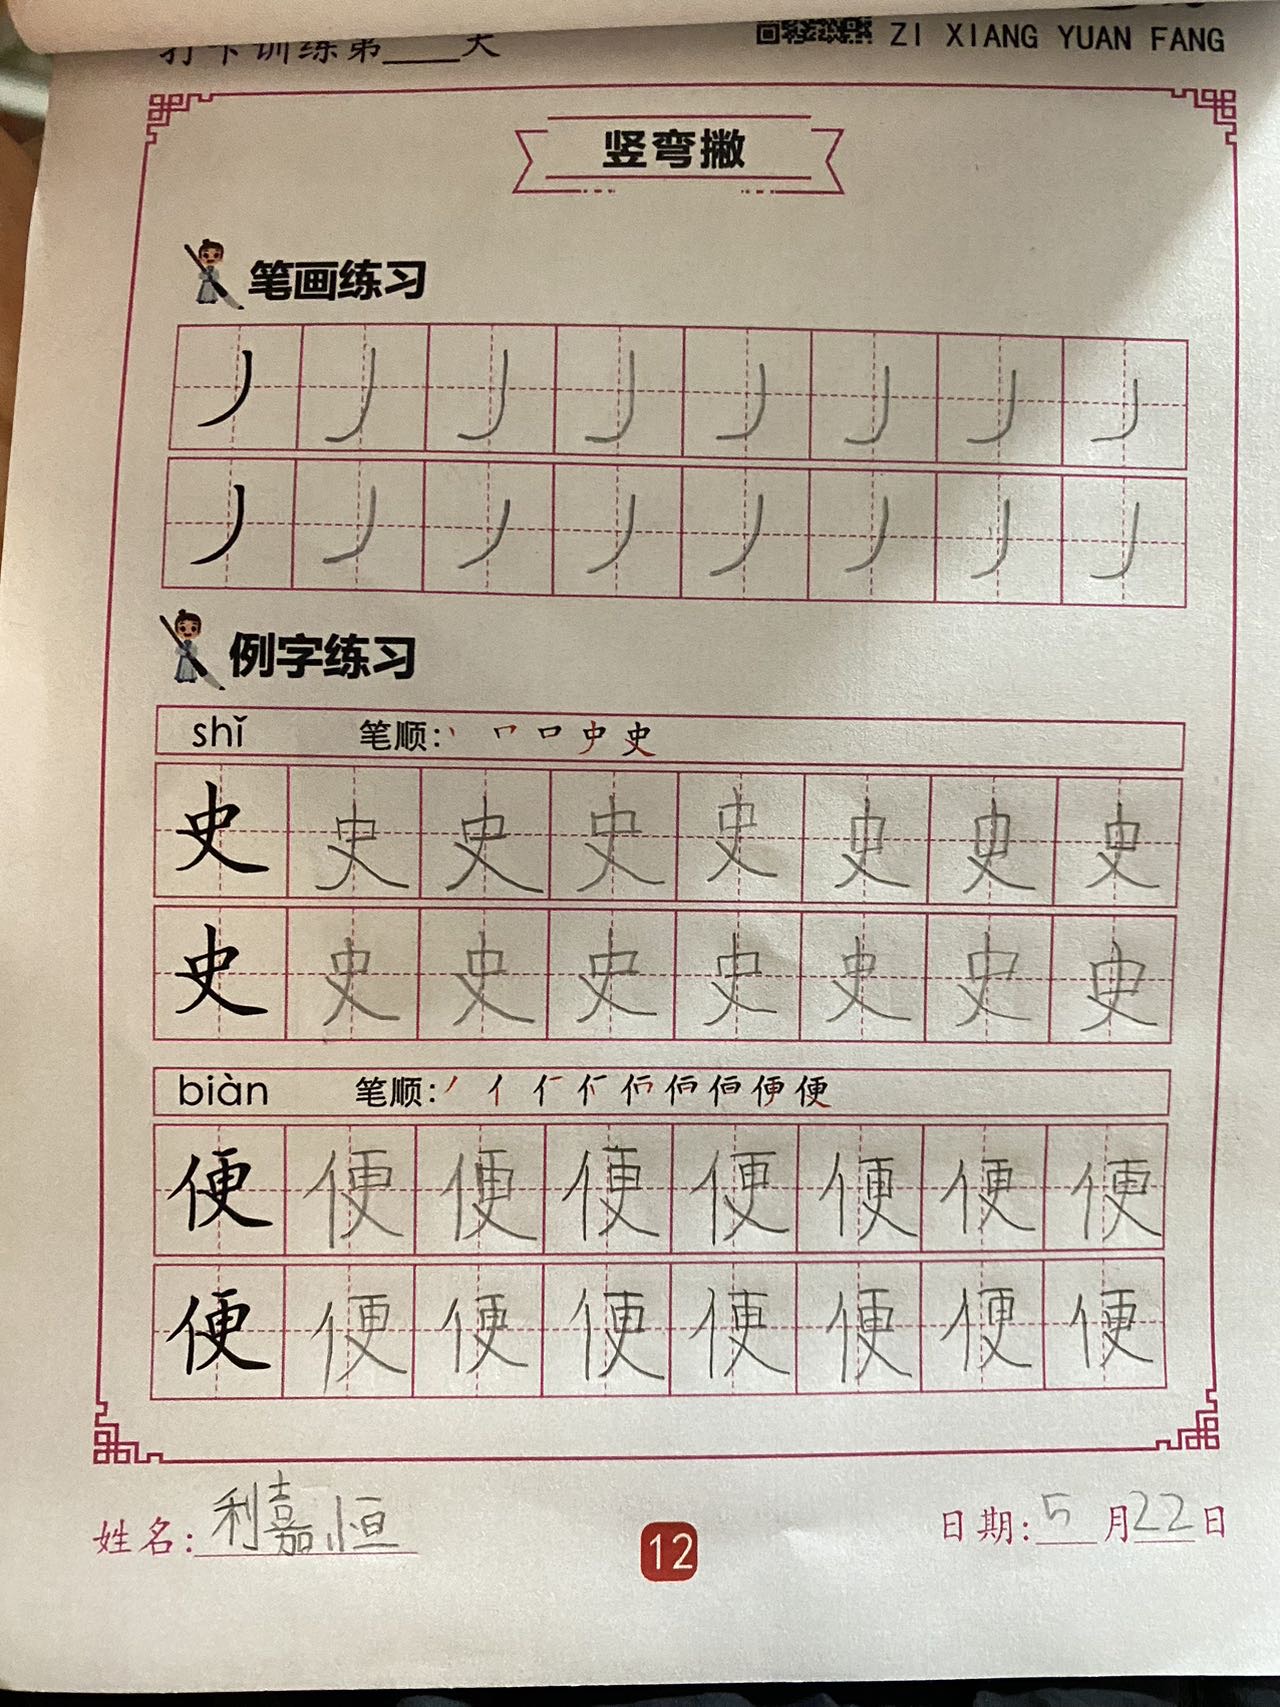 打卡训练第____天
ZI XIANG YUAN FANG
竖弯撇
笔画练习
丿 丿 丿 丿 丿 丿 丿 丿
丿 丿 丿 丿 丿 丿 丿 丿
例字练习
shǐ 笔顺: 丨 𠃍 口 史 史
史 史 史 史 史 史 史 史
史 史 史 史 史 史 史 史
biàn 笔顺: 丿 亻 亻 便 便
便 便 便 便 便 便 便 便
便 便 便 便 便 便 便 便
姓名: 利嘉恒
12
日期: 5月22日